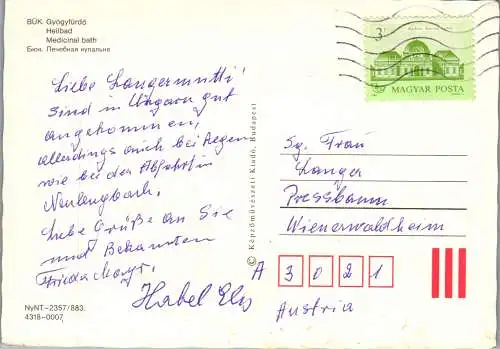 BÜK. Gyógyfürdő
Heilbad
Medicinal bath
Бюк. Лечебная купальня
3
MAGYAR POSTA
Liebe Langermutti!
Sind in Ungarn gut
angekommen,
allerdings auch bei Regen
wie bei der Abfahrt in
Neulengbach.
Liebe Grüße an Sie
und Bekannten
Frieda Mayr.
Habel Els
© Képzőművészeti Kiadó, Budapest
Sg. Frau
Langer
Pressbaum
Wienerwaldheim
A 3021
Austria
NyNT–2357/883.
4318-0007